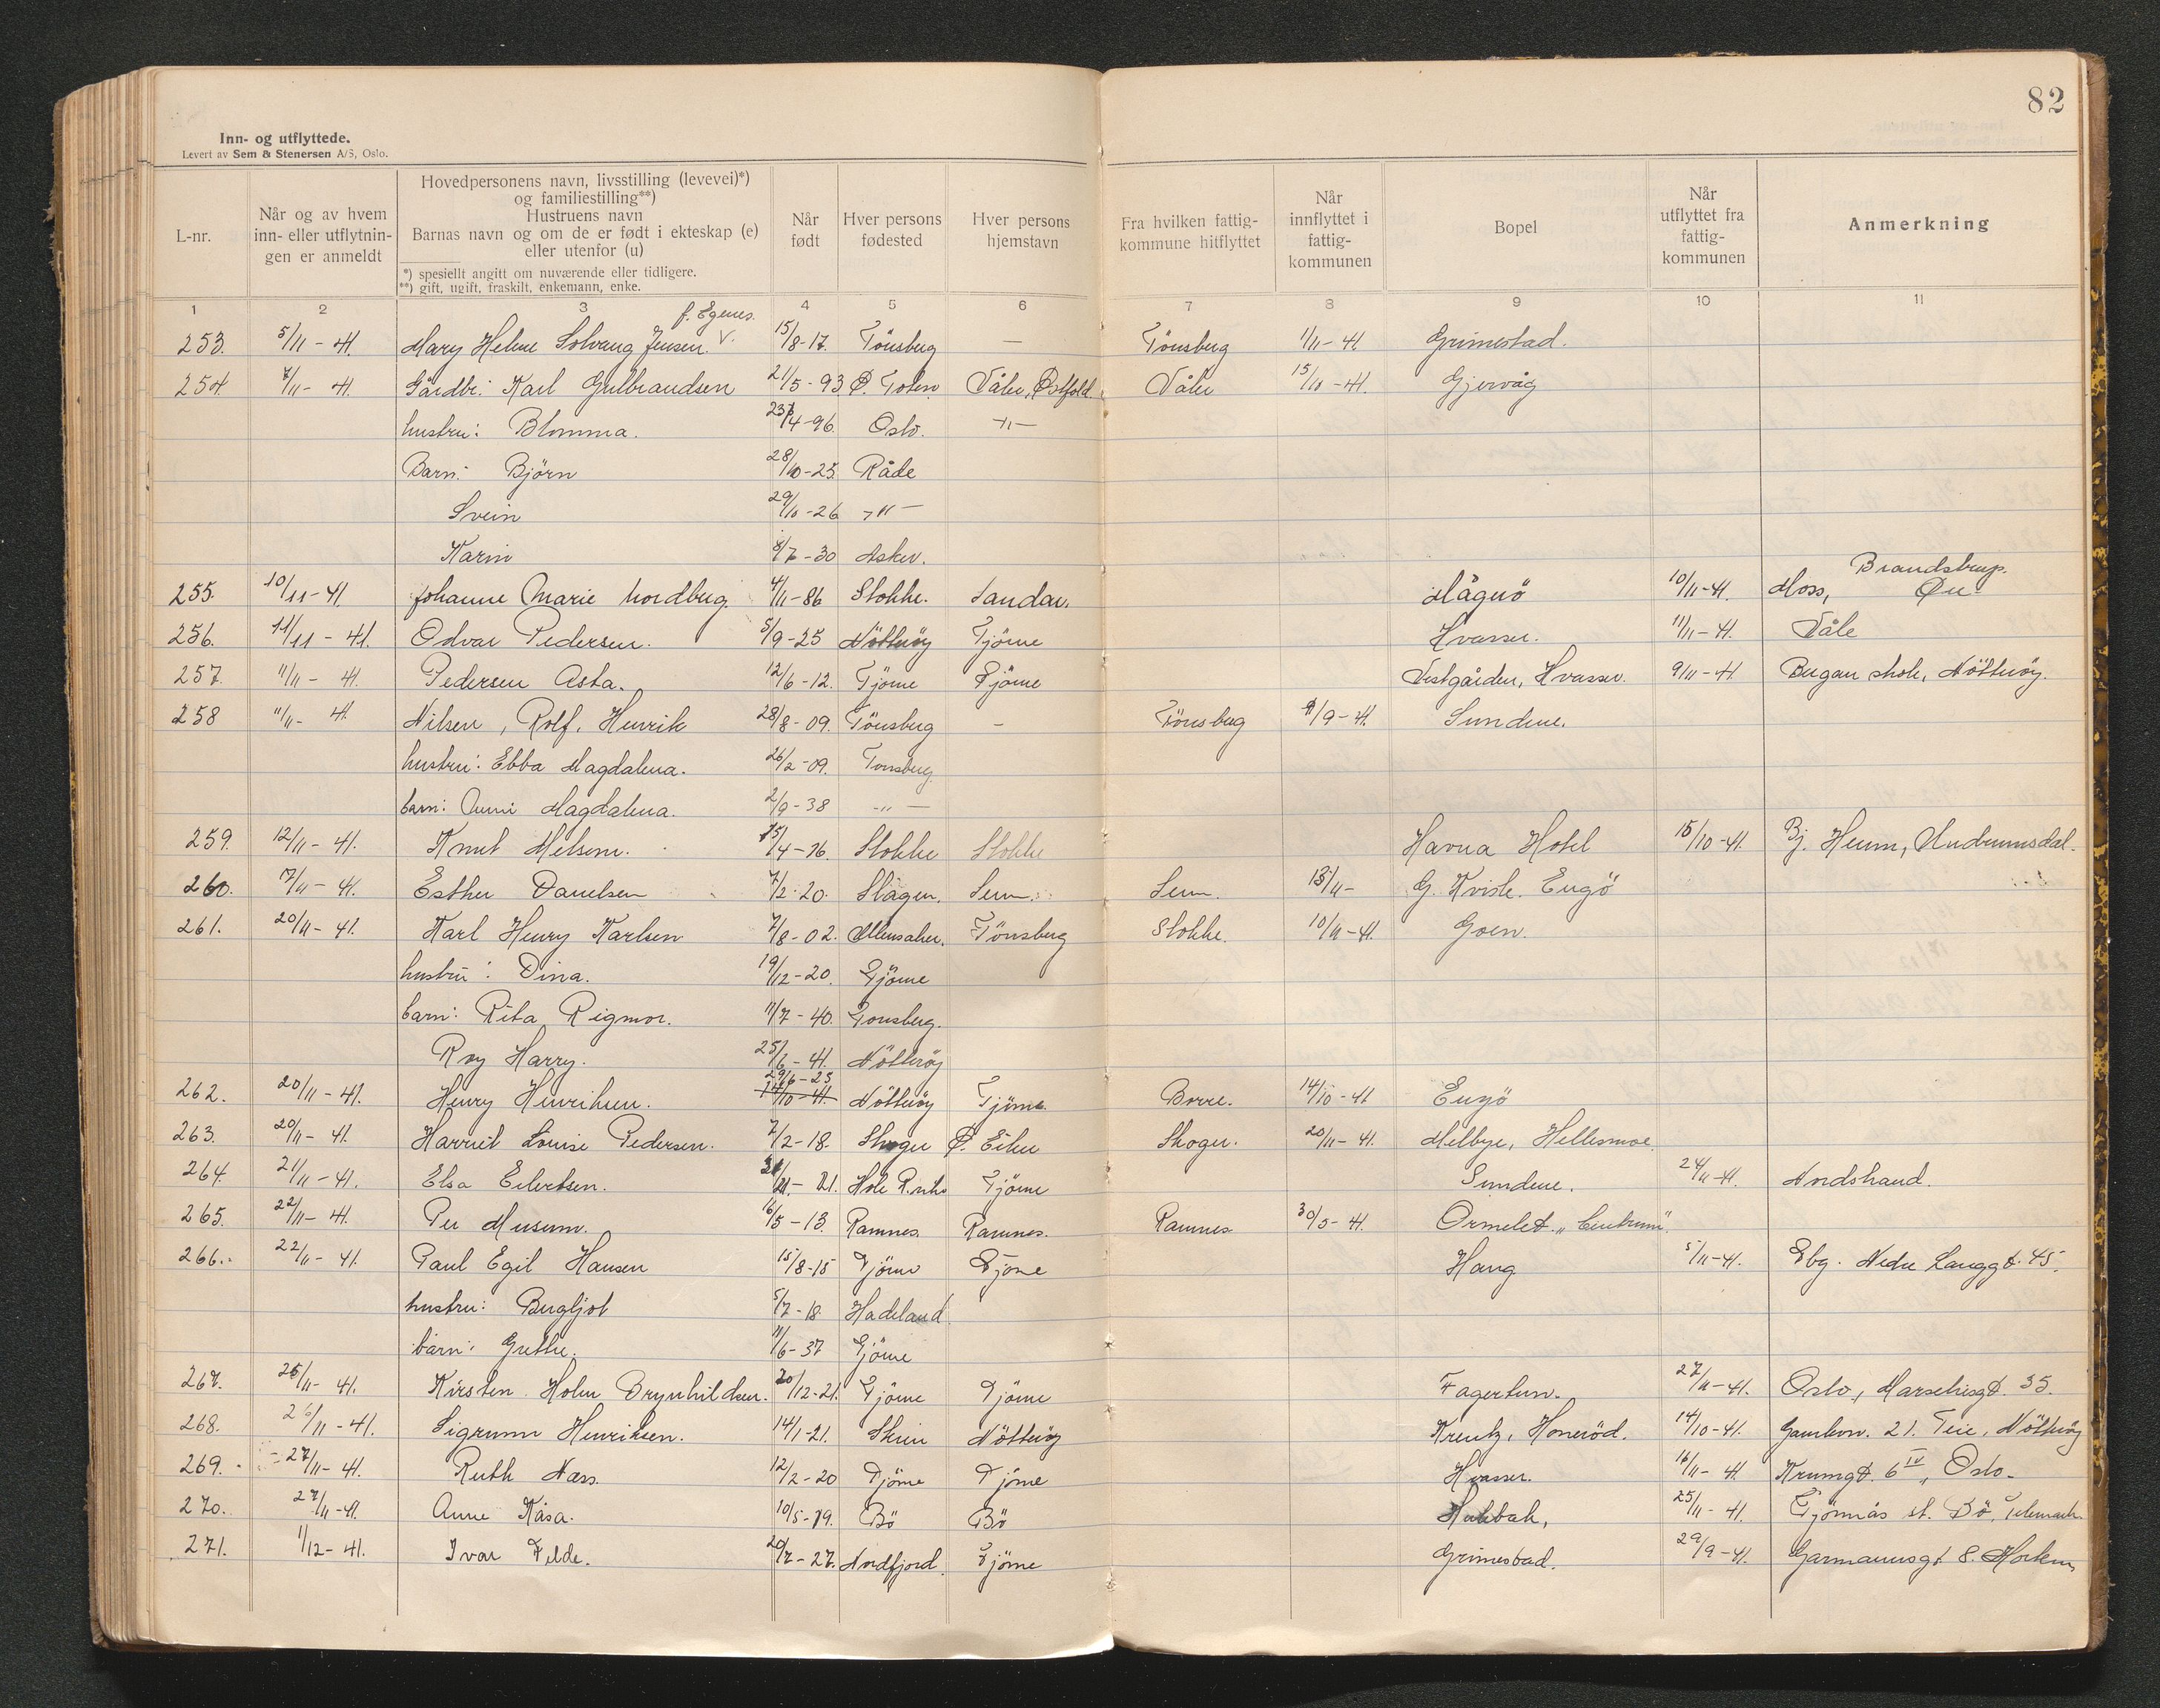 82
Inn- og utflyttede.
Levert av Sem & Stenersen A/S, Oslo.
L-nr.
Når og av hvem inn- eller utflytnin-gen er anmeldt
Hovedpersonens navn, livsstilling (levevei)*)
og familiestilling**)
Hustruens navn
Barnas navn og om de er født i ekteskap (e)
eller utenfor (u)
*) spesiellt angitt om nuværende eller tidligere.
**) gift, ugift, fraskilt, enkemann, enke.
Når født
Hver persons fødested
Hver persons hjemstavn
Fra hvilken fattig-kommune hitflyttet
Når innflyttet i fattig-kommunen
Bopel
Når utflyttet fra fattig-kommunen
Anmerkning
1 2 3 4 5 6 7 8 9 10 11
f. Egenes.
253. 5/11 - 41. Mary Helene Solvang Jensen. v. 15/8-17. Tönsberg — Tönsberg 1/11-41 Grimestad.
254. 7/11 - 41. Gårdbr. Karl Gulbrandsen 21/5-93 Ø. Toten Våler, Østfold. Våler 15/10-41. Gjervåg
hustru: Blomma. 23/4-96. Oslo. -"-
Barn: Björn 28/10-25. Råde
Svein 29/10-26 -"-
Karin 8/7-30 Asker.
Brandstrup.
255. 10/11-41. Johanne Marie Nordberg. 4/11-86 Stokke. Sandar. Mågerö 10/11-41. Moss, Øre
256. 11/11 - 41. Odvar Pedersen. 5/9-25 Nötteröy Tjöme Hvasser. 11/11-41. Våle
257. 11/11 - 41. Pedersen Asta. 12/6-12. Tjöme Tjöme Vestgården, Hvasser. 9/11-41 Bergan skole, Nötteröy.
258 11/11 - 41. Nilsen, Rolf. Henrik 28/8-09. Tönsberg - Tönsberg 9/9-41. Sundene.
hustru: Ebba Magdalena. 26/2-09. Tonsberg.
barn: Anni Magdalena. 2/9-38 -"-
259. 12/11 - 41. Knut Melsom. 15/4-16. Stokke Stokke Havna Hotel 15/10-41. Bj. Heum, Undrumsdal.
260. 17/11 - 41. Esther Danelsen 7/2-20. Slagen. Sem. Sem. 13/11- G. Kvisle. Engö
261. 20/11 - 41. Karl Henry Karlsen 7/8-02. Ullensaker. Tönsberg Stokke. 10/11-41. Goen.
hustru: Dina. 19/12-20. Tjöme
barn: Rita Rigmor. 11/7-40. Tonsberg.
Roy Harry. 25/6-41. Nötteröy
29/6-23
262. 20/11 - 41. Henry Henriksen. 14/10-41. Nötteröy Tjöme. Borre. 14/10-41 Engö
263. 20/11 - 41. Harriet Louise Pedersen. 7/2-18. Skoger Ø. Eiker Skoger. 20/11-41. Melbye, Hellesmoe.
264. 21/11 - 41. Elsa Eilertsen. Hole Tjöme Sundene. 24/11-41. Nordstrand.
265. 22/11 - 41. Per Musum. 16/5-13. Ramnes. Ramnes. Ramnes 30/5-41. Ormelet "Centrum".
266. 22/11 - 41. Paul Egil Hansen 15/8-15 Tjöme Tjöme Haug 5/11-41. Tbg. Nedre Langgt. 45.
hustru: Bergljot 5/7-18 Hadeland.
barn: Grethe. 11/6-37 Tjöme
267. 26/11 - 41. Kirsten Holm Brynhildsen. 20/12-21. Tjöme Tjöme Fagertun. 27/11-41. Oslo, 35.
268. 26/11 - 41. Sigrunn Henriksen. 14/1-21. Skien Nötteröy Kreutz, Honeröd. 14/10-41. 21. Teie, Nötteröy
269. 27/11 - 41. Ruth Næss. 12/2-20 Tjöme Tjöme Hvasser. 16/11-41 Krumgt. 6 IV, Oslo.
270. 27/11-41. Anne Kåsa. 10/5-19. Bö Bö 25/11-41. st. Bö, Telemark.
271. 1/12 - 41. Ivar Felde. 20/7-27. Nordfjord. Tjöme Grimestad. 29/9-41. Garmannsgt 8. Horten